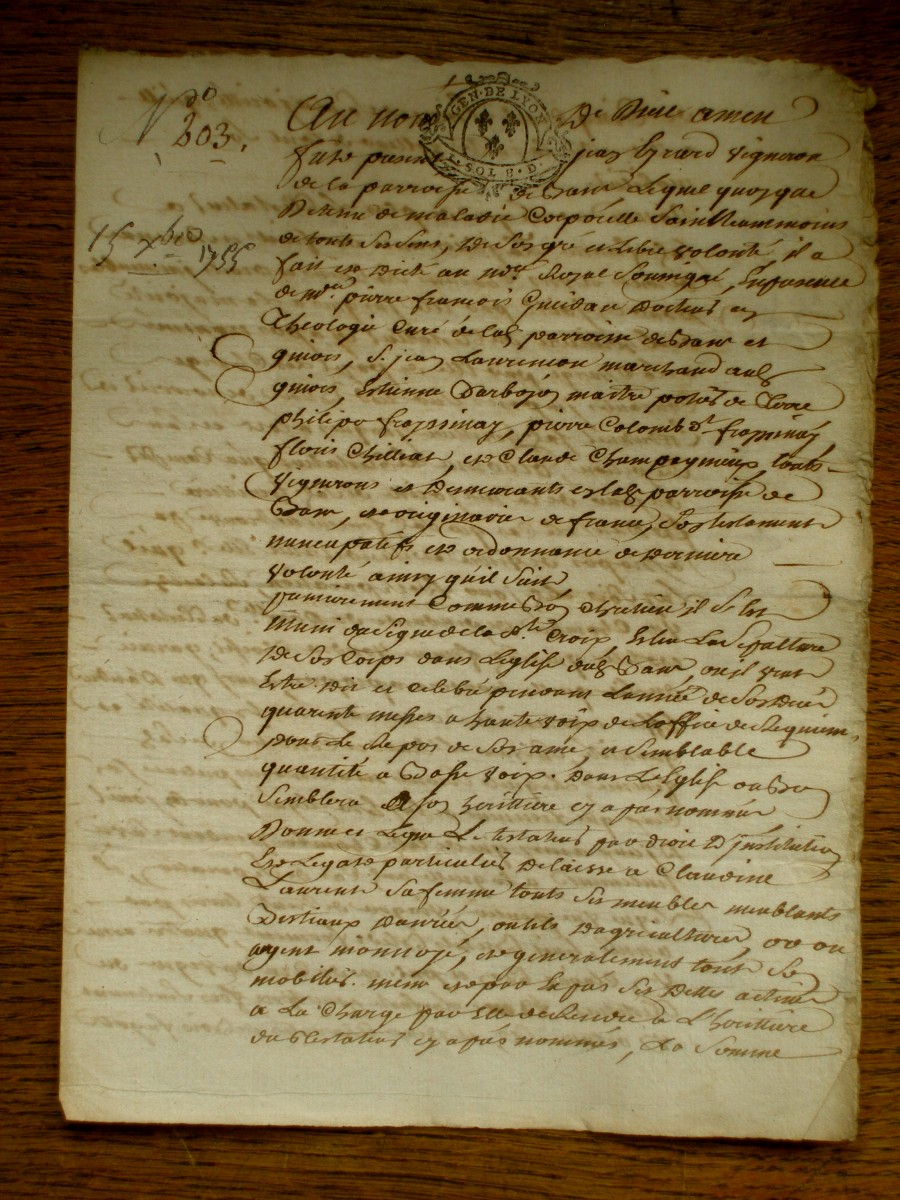 N° 203.
GEN · DE LYON
SOL 8 · D.
15 xbre 1755
Au nom de Dieu amen
fut présent jean Girard vigneron
de la parroisse de Dans Lequel quoyque
Detenu de maladie Corporelle Sain Neammoins
de touts ses sens, De Son gré et Libre volonté, il a
fait et Dicté au no.re Royal Soussigné, En presence
de M.re pierre francois Docteur en
Theologie Curé de lad parroisse de et
S. jean Laurencon marchand aud
Estienne maitre potier de Terre
philipe frayssinay, pierre Colomb dt frayssinay
Chillias, et Claude Champagneux touts
vignerons et Demeurants en lad parroisse de
et originaire de france, Son testament
nuncupatif et ordonnance de Derniere
volonté ainsy qu'il Suit
premierement Comme Bon Chretien il S'est
muni du Signe de la Ste Croix, Eslu La Sepulture
De Son Corps dans L'eglise dud ou il veut
Estre dit et celebré pendant L'année de Son Deces
quarente messes a haute voix de L'office de Requiem
pour Le Repos de Son ame, et Semblable
quantité a Basse voix. Dans L'Eglise ou Bon
Semblera a Son heritiere cy apres nommée
Donne et Legue Le testateur par droit D'institution
Et Legat particulier Delaisse a Claudine
Laurent Sa femme touts Ses meubles meublants
Bestiaux Danrées, outils D'agriculture, or ou
argent monnoyé, et generalement tout Se
mobilier. meme et par Exprés Ses Dettes actives
a La Charge par Elle de Rendre a L'heritiere
du Testateur cy apres nommée, La Somme